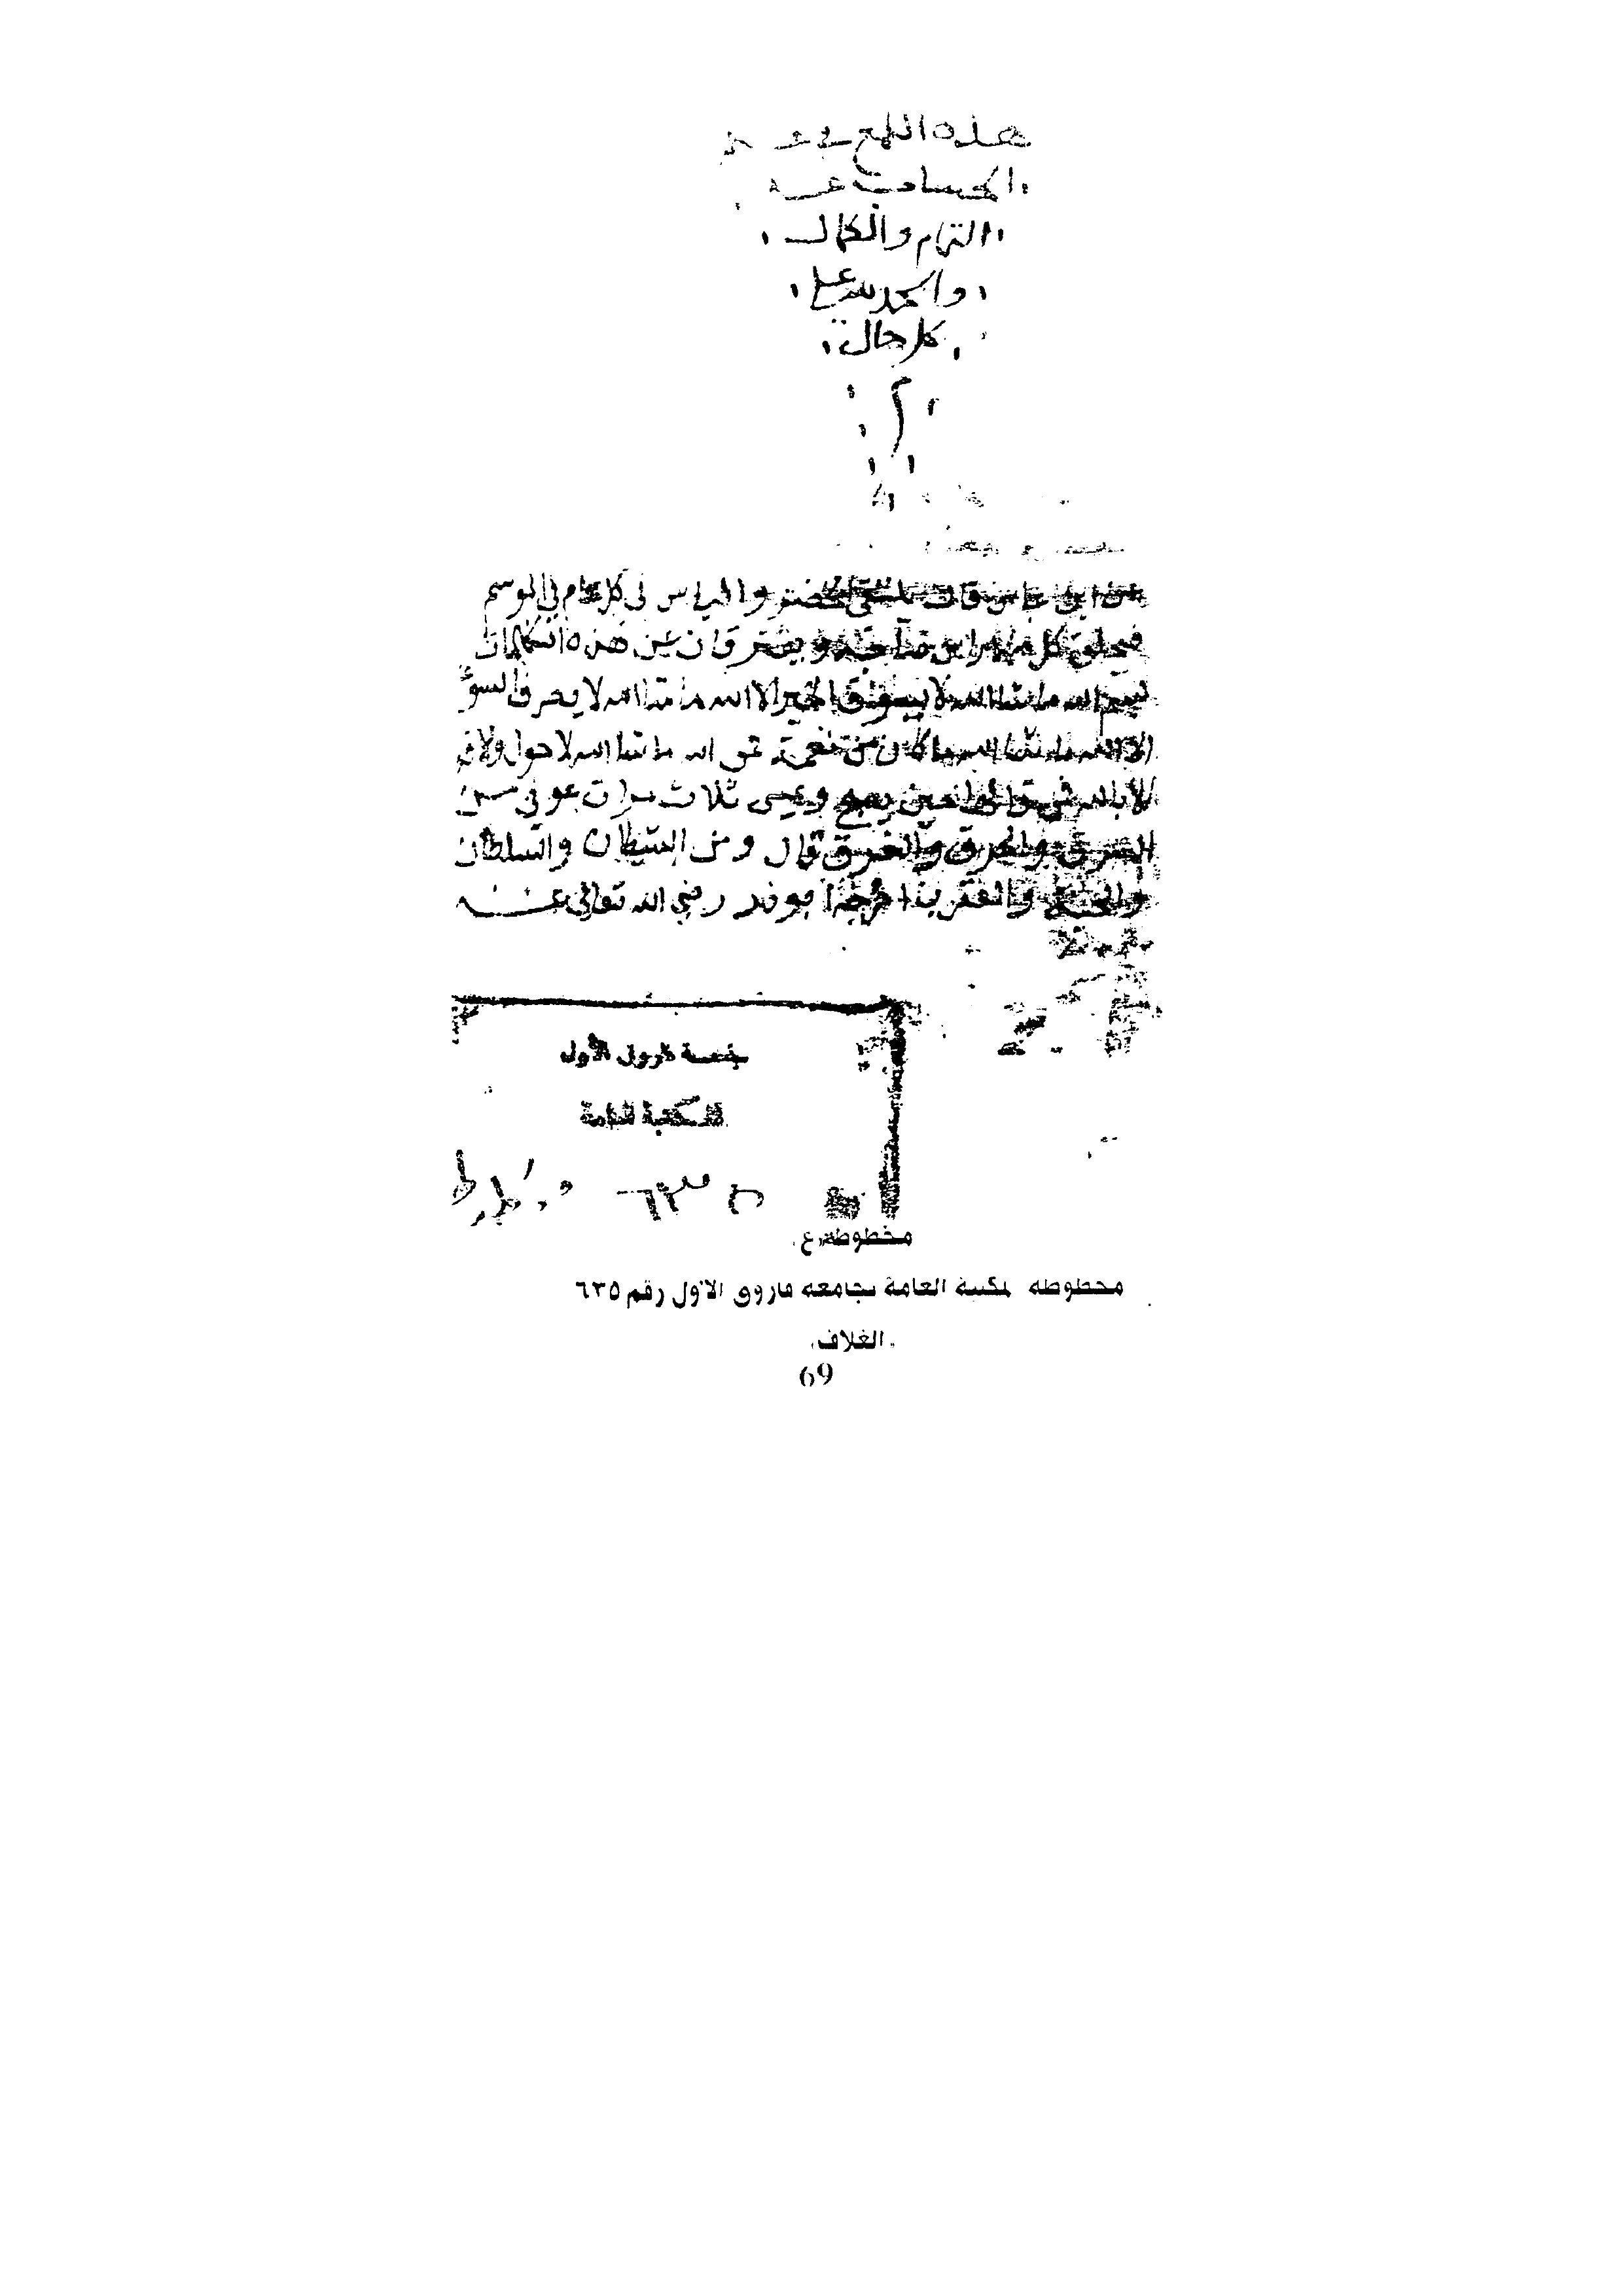 هذه اللمع في
الحساب
التمام والكمال
والحمد لله على
كل حال
م
عن ابن عباس قال يلتقي الخضر والياس في كل عام في الموسم
فيحلق كل منهما راس صاحبه ويفترقان عن هذه الكلمات
بسم الله ما شا الله لا يسوق الخير الا الله ما شا الله لا يصرف السوء
الا الله ما شا الله ما كان من نعمة فمن الله ما شا الله لا حول ولا
الا بالله فمن قالها حين يصبح ويمسي ثلاث مرات عوفي من
السرق والحرق والغرق قال ومن الشيطان والسلطان
والحية والعقرب رضي الله تعالى عنه
جامعة فاروق الأول
المكتبة العامة
مخطوطة ع
مخطوطه لمكتبة العامة بجامعه فاروق الاول رقم ٦٣٥
الغلاف
69